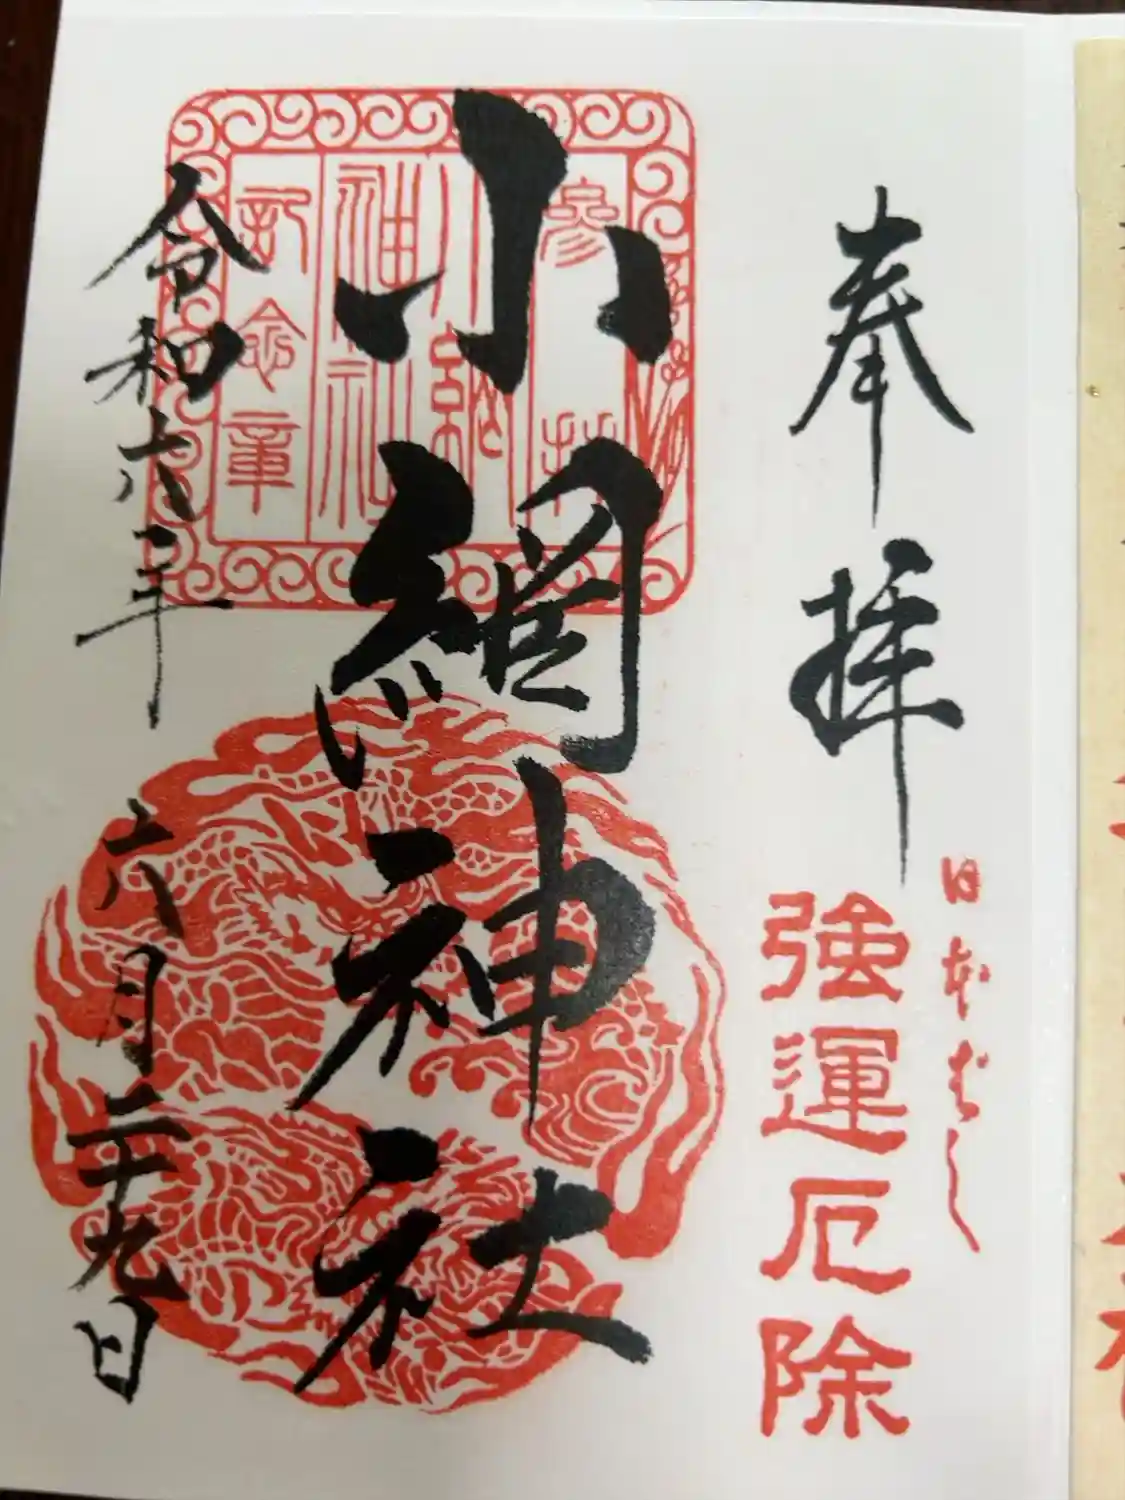 奉拝
日本ばし
強運厄除
小網神社
参拝
小網
神社
記念章
令和六年 六月二十九日